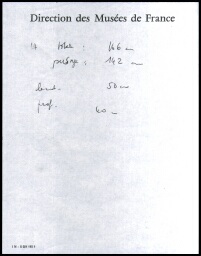 Direction des Musées de France
H totale : 166 cm
: 142 cm
haut. 50 cm
prof. 40 cm